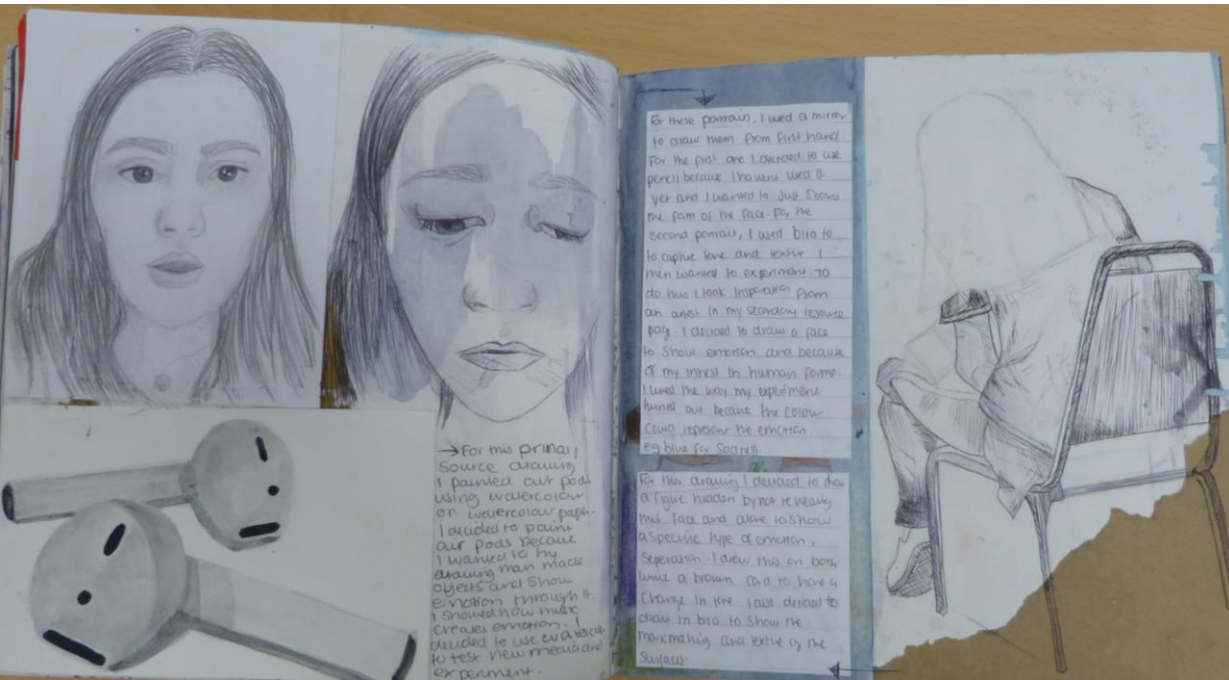 →For this primary
source drawing
I painted air pods
using watercolour
on watercolour paper.
I decided to paint
air pods because
I wanted to try
drawing man made
objects and show
emotion through it.
I showed how music
creates emotion. I
decided to use
to test new media and
experiment.
For these portraits, I used a mirror
to draw them from first hand.
For the first one I decided to use
pencil because I havent used it
yet and I wanted to just show
the form of the face. For the
second portrait, I used biro to
to capture tone and texture I
then wanted to experiment. To
do this I took inspiration from
an artist in my secondary resource
page. I decided to draw a face
to show emotion and because
of my interest in human forms.
I liked the way my experiment
turned out because the colour
could represent the emotion.
eg blue for sadness
For this drawing I decided to draw
a figure hidden by not revealing
their face and also to show
a specific type of emotion,
seperation. I drew this on both
white a brown card to have a
change in tone. I also decided to
draw in biro to show the
markmaking and texture of the
surfaces.